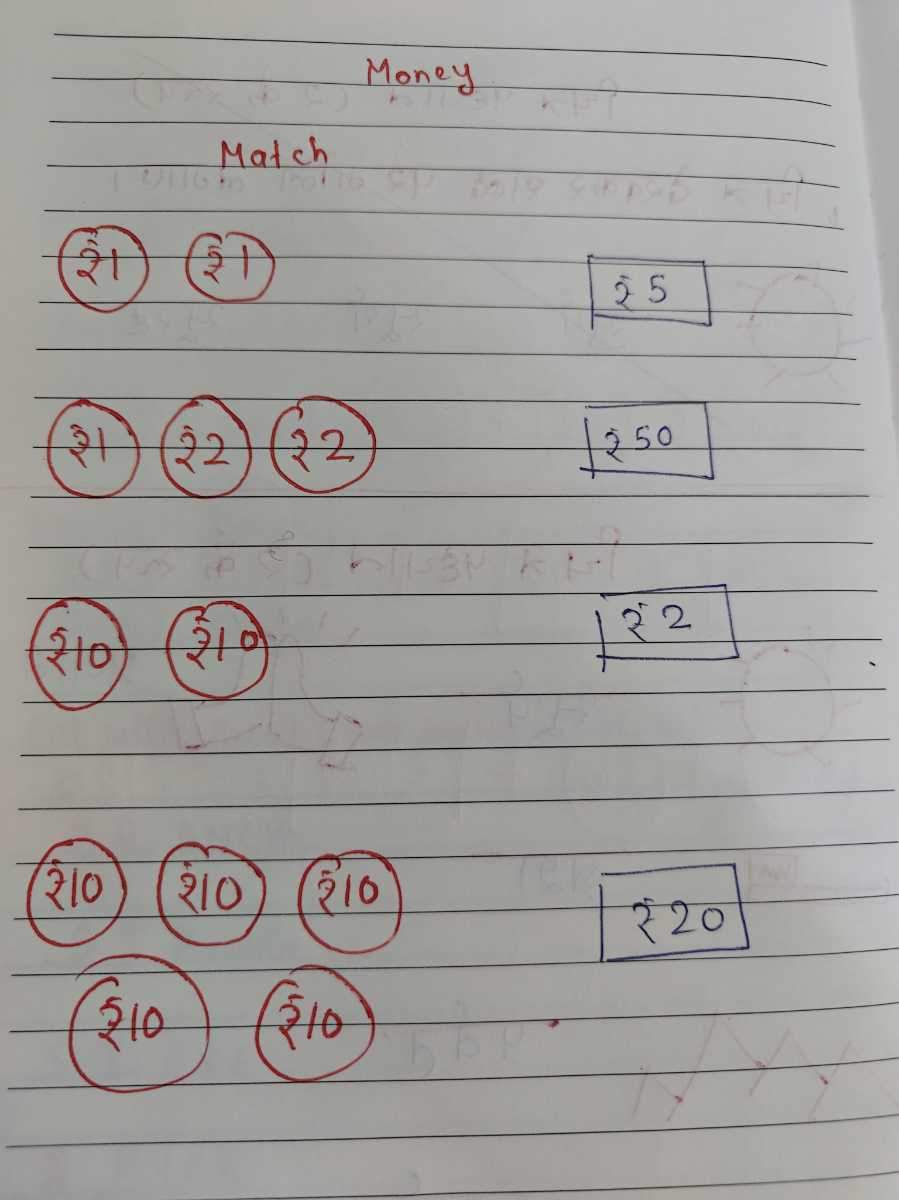 Money
Match
₹1 ₹1 ₹5
₹1 ₹2 ₹2 ₹50
₹10 ₹10 ₹2
₹10 ₹10 ₹10 ₹20
₹10 ₹10